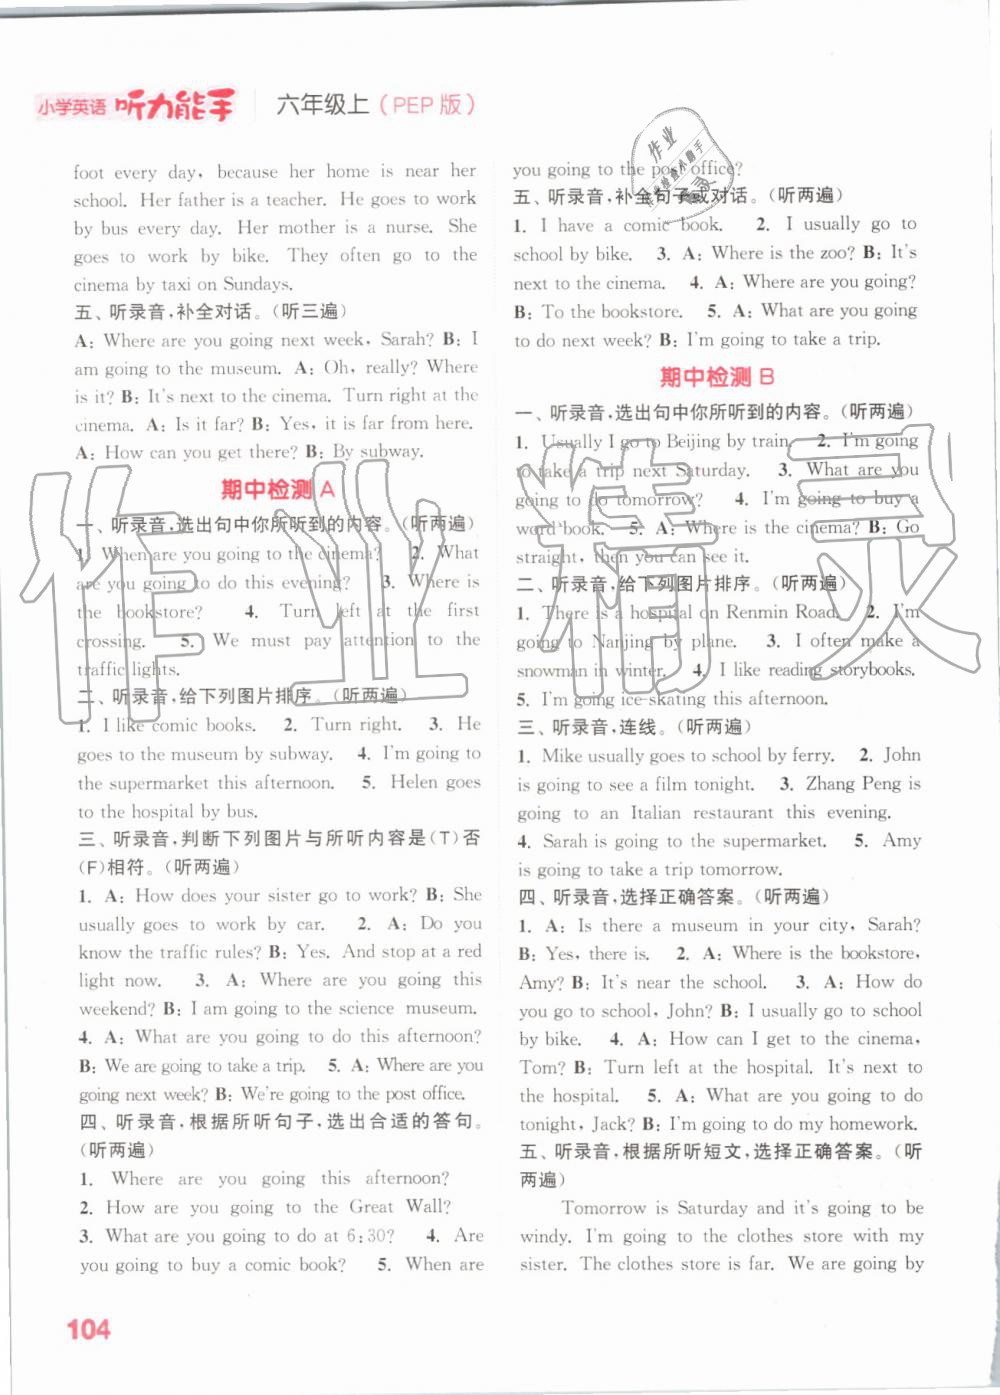 小学英语 听力能手 六年级上(PEP 版)
foot every day, because her home is near her
school. Her father is a teacher. He goes to work
by bus every day. Her mother is a nurse. She
goes to work by bike. They often go to the
cinema by taxi on Sundays.
五、听录音,补全对话。(听三遍)
A: Where are you going next week, Sarah? B: I
am going to the museum. A: Oh, really? Where
is it? B: It's next to the cinema. Turn right at the
cinema. A: Is it far? B: Yes, it is far from here.
A: How can you get there? B: By subway.
期中检测 A
一、听录音,选出句中你所听到的内容。(听两遍)
1. When are you going to the cinema? 2. What
are you going to do this evening? 3. Where is
the bookstore? 4. Turn left at the first
crossing. 5. We must pay attention to the
traffic lights.
二、听录音,给下列图片排序。(听两遍)
1. I like comic books. 2. Turn right. 3. He
goes to the museum by subway. 4. I'm going to
the supermarket this afternoon. 5. Helen goes
to the hospital by bus.
三、听录音,判断下列图片与所听内容是(T)否
(F)相符。(听两遍)
1. A: How does your sister go to work? B: She
usually goes to work by car. 2. A: Do you
know the traffic rules? B: Yes. And stop at a red
light now. 3. A: Where are you going this
weekend? B: I am going to the science museum.
4. A: What are you going to do this afternoon?
B: We are going to take a trip. 5. A: Where are you
going next week? B: We're going to the post office.
四、听录音,根据所听句子,选出合适的答句。
(听两遍)
1. Where are you going this afternoon?
2. How are you going to the Great Wall?
3. What are you going to do at 6:30? 4. Are
you going to buy a comic book? 5. When are
104
you going to the post office?
五、听录音,补全句子或对话。(听两遍)
1. I have a comic book. 2. I usually go to
school by bike. 3. A: Where is the zoo? B: It's
next to the cinema. 4. A: Where are you going?
B: To the bookstore. 5. A: What are you going
to do next week? B: I'm going to take a trip.
期中检测 B
一、听录音,选出句中你所听到的内容。(听两遍)
1. Usually I go to Beijing by train. 2. I'm going
to take a trip next Saturday. 3. What are you
going to do tomorrow? 4. I'm going to buy a
word book. 5. A: Where is the cinema? B: Go
straight, then you can see it.
二、听录音,给下列图片排序。(听两遍)
1. There is a hospital on Renmin Road. 2. I'm
going to Nanjing by plane. 3. I often make a
snowman in winter. 4. I like reading storybooks.
5. I'm going ice-skating this afternoon.
三、听录音,连线。(听两遍)
1. Mike usually goes to school by ferry. 2. John
is going to see a film tonight. 3. Zhang Peng is
going to an Italian restaurant this evening.
4. Sarah is going to the supermarket. 5. Amy
is going to take a trip tomorrow.
四、听录音,选择正确答案。(听两遍)
1. A: Is there a museum in your city, Sarah?
B: Yes, there is. 2. A: Where is the bookstore,
Amy? B: It's near the school. 3. A: How do
you go to school, John? B: I usually go to school
by bike. 4. A: How can I get to the cinema,
Tom? B: Turn left at the hospital. It's next to
the hospital. 5. A: What are you going to do
tonight, Jack? B: I'm going to do my homework.
五、听录音,根据所听短文,选择正确答案。(听
两遍)
Tomorrow is Saturday and it's going to be
windy. I'm going to the clothes store with my
sister. The clothes store is far. We are going by
作业精灵